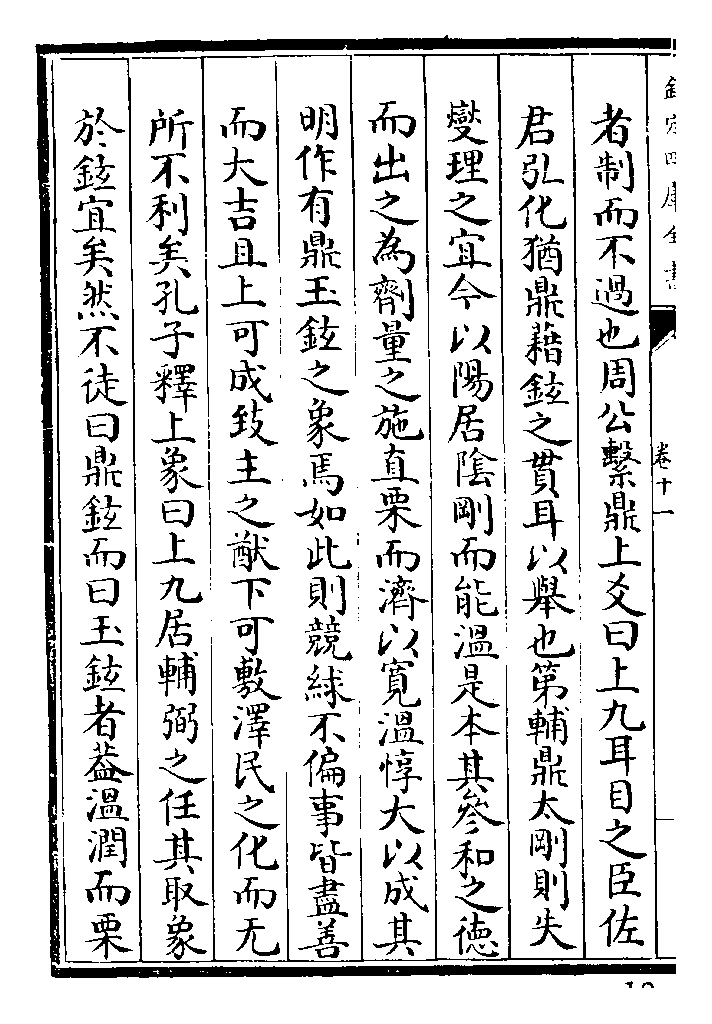 欽定四庫全書
卷十一
者制而不過也周公繫鼎上爻曰上九耳目之臣佐
君弘化猶鼎藉鉉之貫耳以舉也第輔鼎太剛則失
燮理之宜今以陽居陰剛而能溫是本其參和之德
而出之為劑量之施直栗而濟以寬溫惇大以成其
明作有鼎玉鉉之象焉如此則競絿不偏事皆盡善
而大吉且上可成致主之猷下可敷澤民之化而无
所不利矣孔子釋上象曰上九居輔弼之任其取象
於鉉宜矣然不徒曰鼎鉉而曰玉鉉者葢溫潤而栗